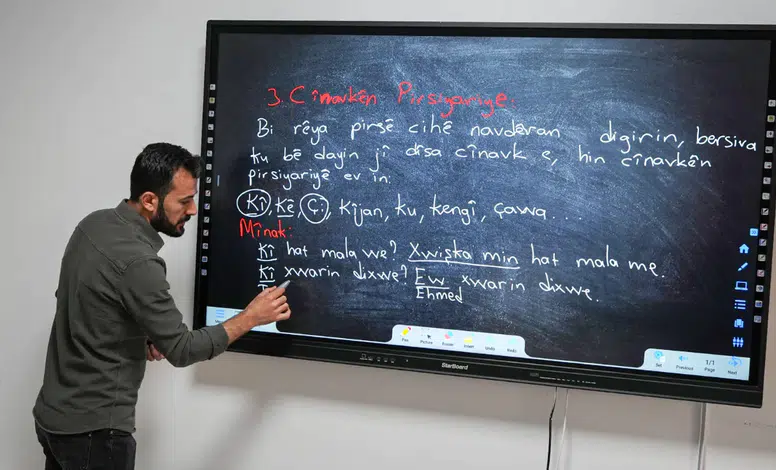 3. Cînavkên Pirsiyariyê:
Bi rêya pirsê cihê navdêran digirin, bersiva
ku bê dayin jî dîsa cînavk e, hin cînavkên
pirsiyariyê ev in:
Kî, Kê, Çi, kîjan, ku, kengî, çawa...
Mînak:
Kî hat mala we? Xwişka min hat mala me.
Kî xwarin dixwe? Ew xwarin dixwe.
Ehmed
Pen Picture Eraser Undo Redo
StarBoard
1/1
Page
Next